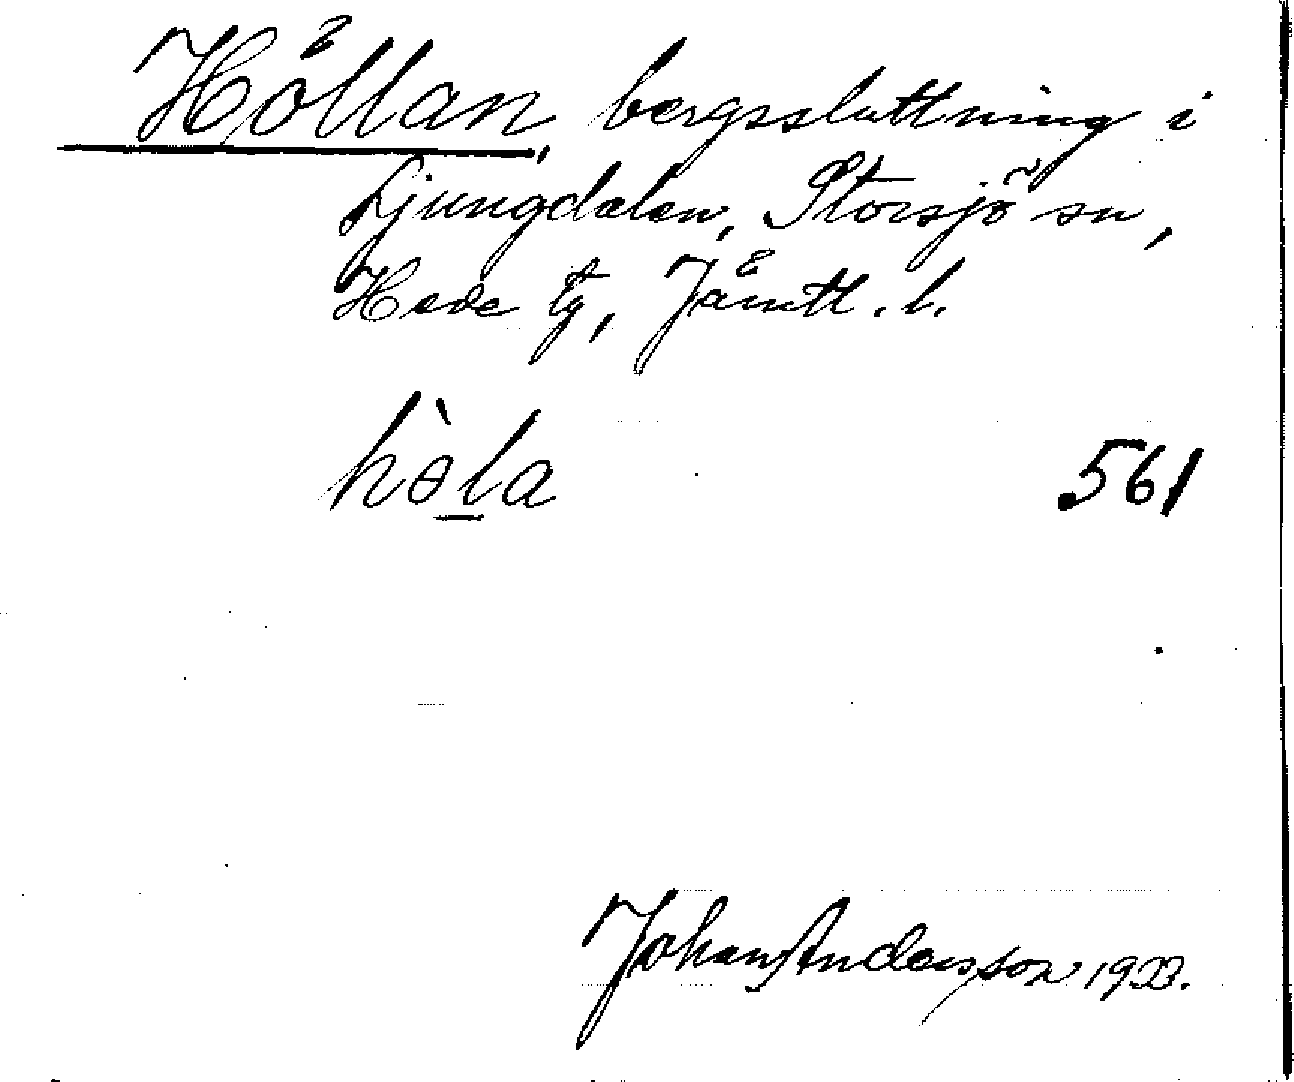 Höllan, bergssluttning i
Ljungdalen, Storsjö sn,
Hede tg, Jämtl. l.
hòla 561
Johan Andersson 1923.